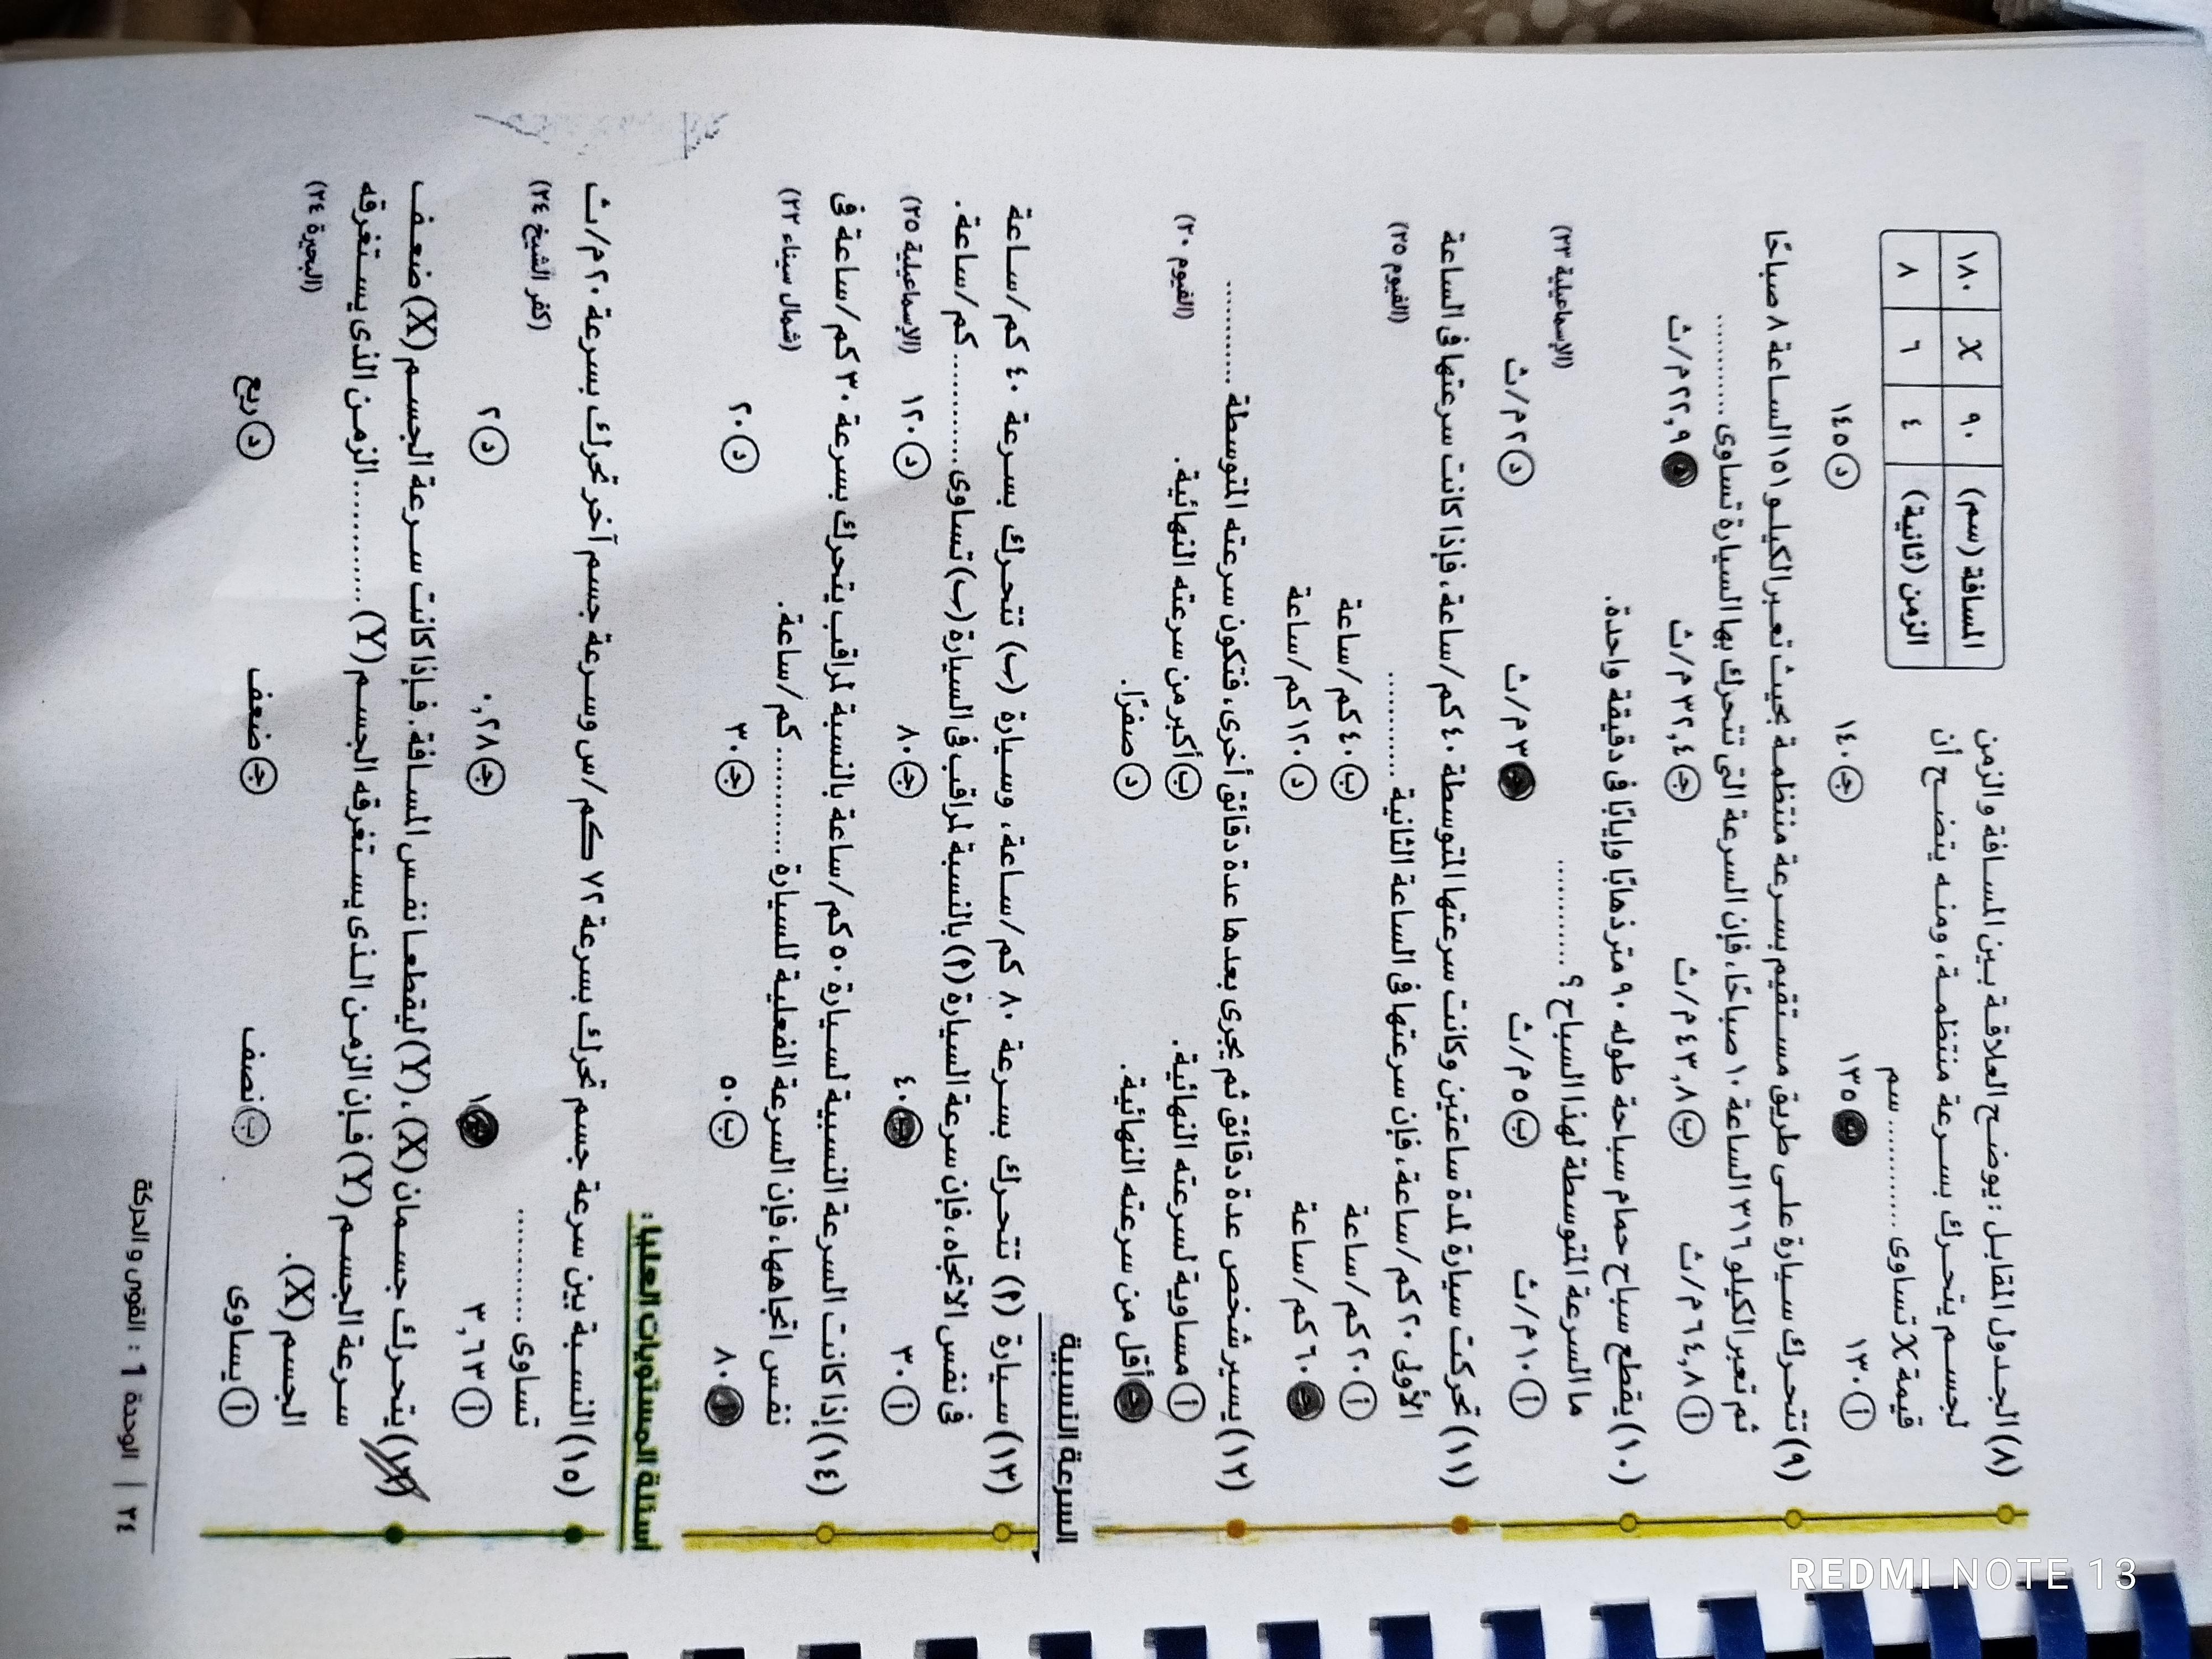 (٨) الجدول المقابل : يوضح العلاقة بين المسافة والزمن
لجسم يتحرك بسرعة منتظمة، ومنه يتضح أن
قيمة X تساوى ............ سم
المسافة (سم) ٩٠ X ١٨٠
الزمن (ثانية) ٤ ٦ ٨
أ ١٣٠ ب ١٣٥ ج ١٤٠ د ١٤٥
(٩) تتحرك سيارة على طريق مستقيم بسرعة منتظمة بحيث تعبر الكيلو ١٥١ الساعة ٨ صباحًا
ثم تعبر الكيلو ٣١٦ الساعة ١٠ صباحًا، فإن السرعة التى تتحرك بها السيارة تساوى ............
أ ٦٤,٨ م/ث ب ٤٣,٨ م/ث ج ٣٢,٤ م/ث د ٢٢,٩ م/ث
(١٠) يقطع سباح حمام سباحة طوله ٩٠ متر ذهابًا وإيابًا فى دقيقة واحدة.
ما السرعة المتوسطة لهذا السباح ............ ؟ (الإسماعيلية ٢٣)
أ ١٠ م/ث ب ٥ م/ث ج ٣ م/ث د ٢ م/ث
(١١) تحركت سيارة لمدة ساعتين وكانت سرعتها المتوسطة ٤٠ كم/ساعة، فإذا كانت سرعتها فى الساعة
الأولى ٢٠ كم/ساعة، فإن سرعتها فى الساعة الثانية ............ (الفيوم ٢٥)
أ ٢٠ كم/ساعة ب ٤٠ كم/ساعة
ج ٦٠ كم/ساعة د ١٢٠ كم/ساعة
(١٢) يسير شخص عدة دقائق ثم يجرى بعدها عدة دقائق أخرى، فتكون سرعته المتوسطة ............
أ مساوية لسرعته النهائية. ب أكبر من سرعته النهائية. (الفيوم ٢٠)
ج أقل من سرعته النهائية. د صفرًا.
السرعة النسبية
(١٣) سيارة (٢) تتحرك بسرعة ٨٠ كم/ساعة، وسيارة (ب) تتحرك بسرعة ٤٠ كم/ساعة
فى نفس الاتجاه، فإن سرعة السيارة (٢) بالنسبة لمراقب فى السيارة (ب) تساوى ............ كم/ساعة.
أ ٣٠ ب ٤٠ ج ٨٠ د ١٢٠ (الإسماعيلية ٢٥)
(١٤) إذا كانت السرعة النسبية لسيارة ٥٠ كم/ساعة بالنسبة لمراقب يتحرك بسرعة ٣٠ كم/ساعة فى
نفس اتجاهها، فإن السرعة الفعلية للسيارة ............ كم/ساعة. (شمال سيناء ٢٢)
أ ٨٠ ب ٥٠ ج ٣٠ د ٢٠
أسئلة المستويات العليا :
(١٥) النسبة بين سرعة جسم تحرك بسرعة ٧٢ كم/س وسرعة جسم آخر تحرك بسرعة ٢٠ م/ث
تساوى ............ (كفر الشيخ ٢٤)
أ ٣,٦٣ ب ١ ج ٠,٢٨ د ٢
(١٦) يتحرك جسمان (X)، (Y) ليقطعا نفس المسافة. فإذا كانت سرعة الجسم (X) ضعف
سرعة الجسم (Y) فإن الزمن الذى يستغرقه الجسم (Y) ............ الزمن الذى يستغرقه
الجسم (X). (البحيرة ٢٤)
أ يساوى ب نصف ج ضعف د ربع
٢٤ | الوحدة 1 : القوى والحركة
REDMI NOTE 13